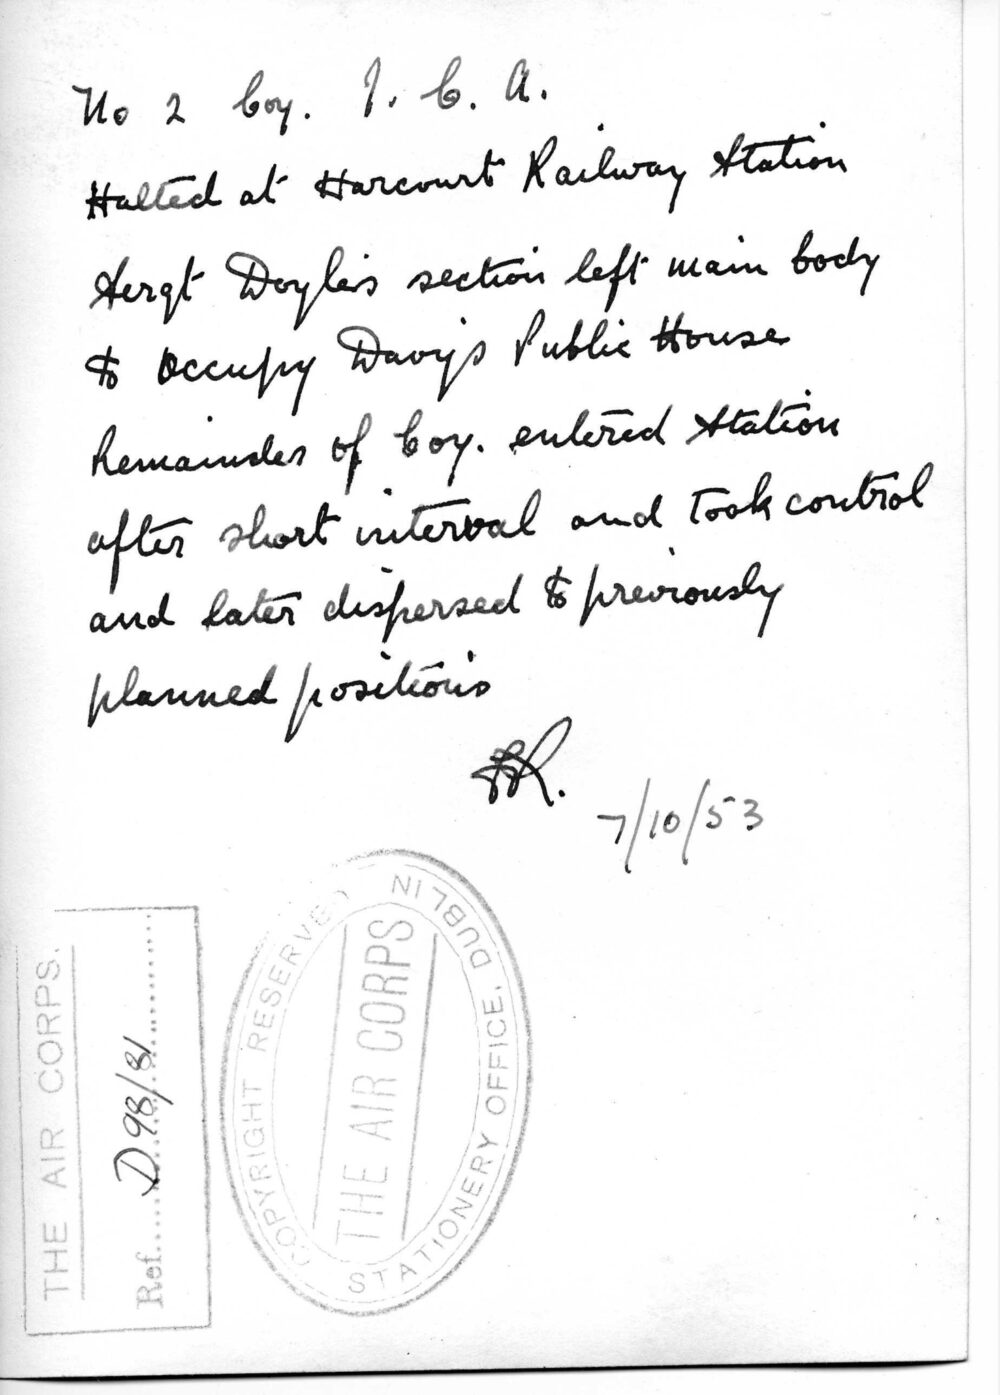 No 2 Coy. I. C. A.
Halted at Harcourt Railway Station
Sergt Doyle's section left main body
to occupy Davy's Public House
Remainder of Coy. entered Station
after short interval and took control
and later dispersed to previously
planned positions
7/10/53
THE AIR CORPS.
Ref. D98/81
COPYRIGHT RESERVED
THE AIR CORPS
STATIONERY OFFICE, DUBLIN